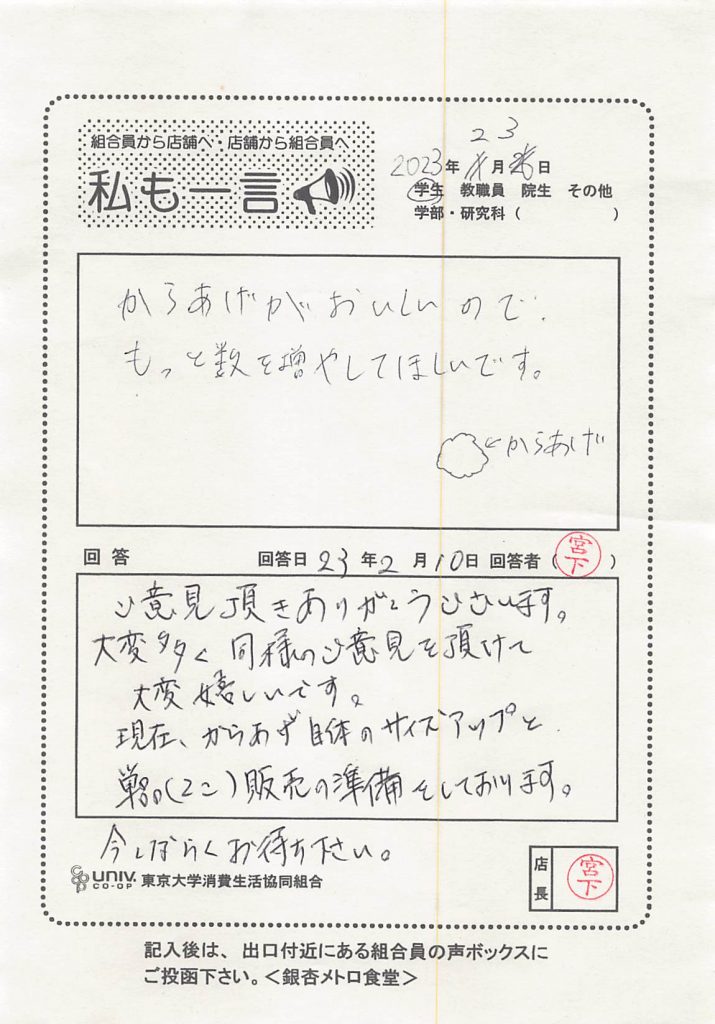 組合員から店舗へ・店舗から組合員へ
私も一言
23
2023年 月 日
学生 教職員 院生 その他
学部・研究科( )
からあげがおいしいので、
もっと数を増やしてほしいです。
←からあげ
回答 回答日 23年2月10日 回答者(宮下)
ご意見頂きありがとうございます。
大変多く同様のご意見を頂けて
大変嬉しいです。
現在、からあげ自体のサイズアップと
単品(2こ)販売の準備をしております。
今しばらくお待ち下さい。
UNIV.
CO-OP
東京大学消費生活協同組合
店長
宮下
記入後は、出口付近にある組合員の声ボックスに
ご投函下さい。<銀杏メトロ食堂>